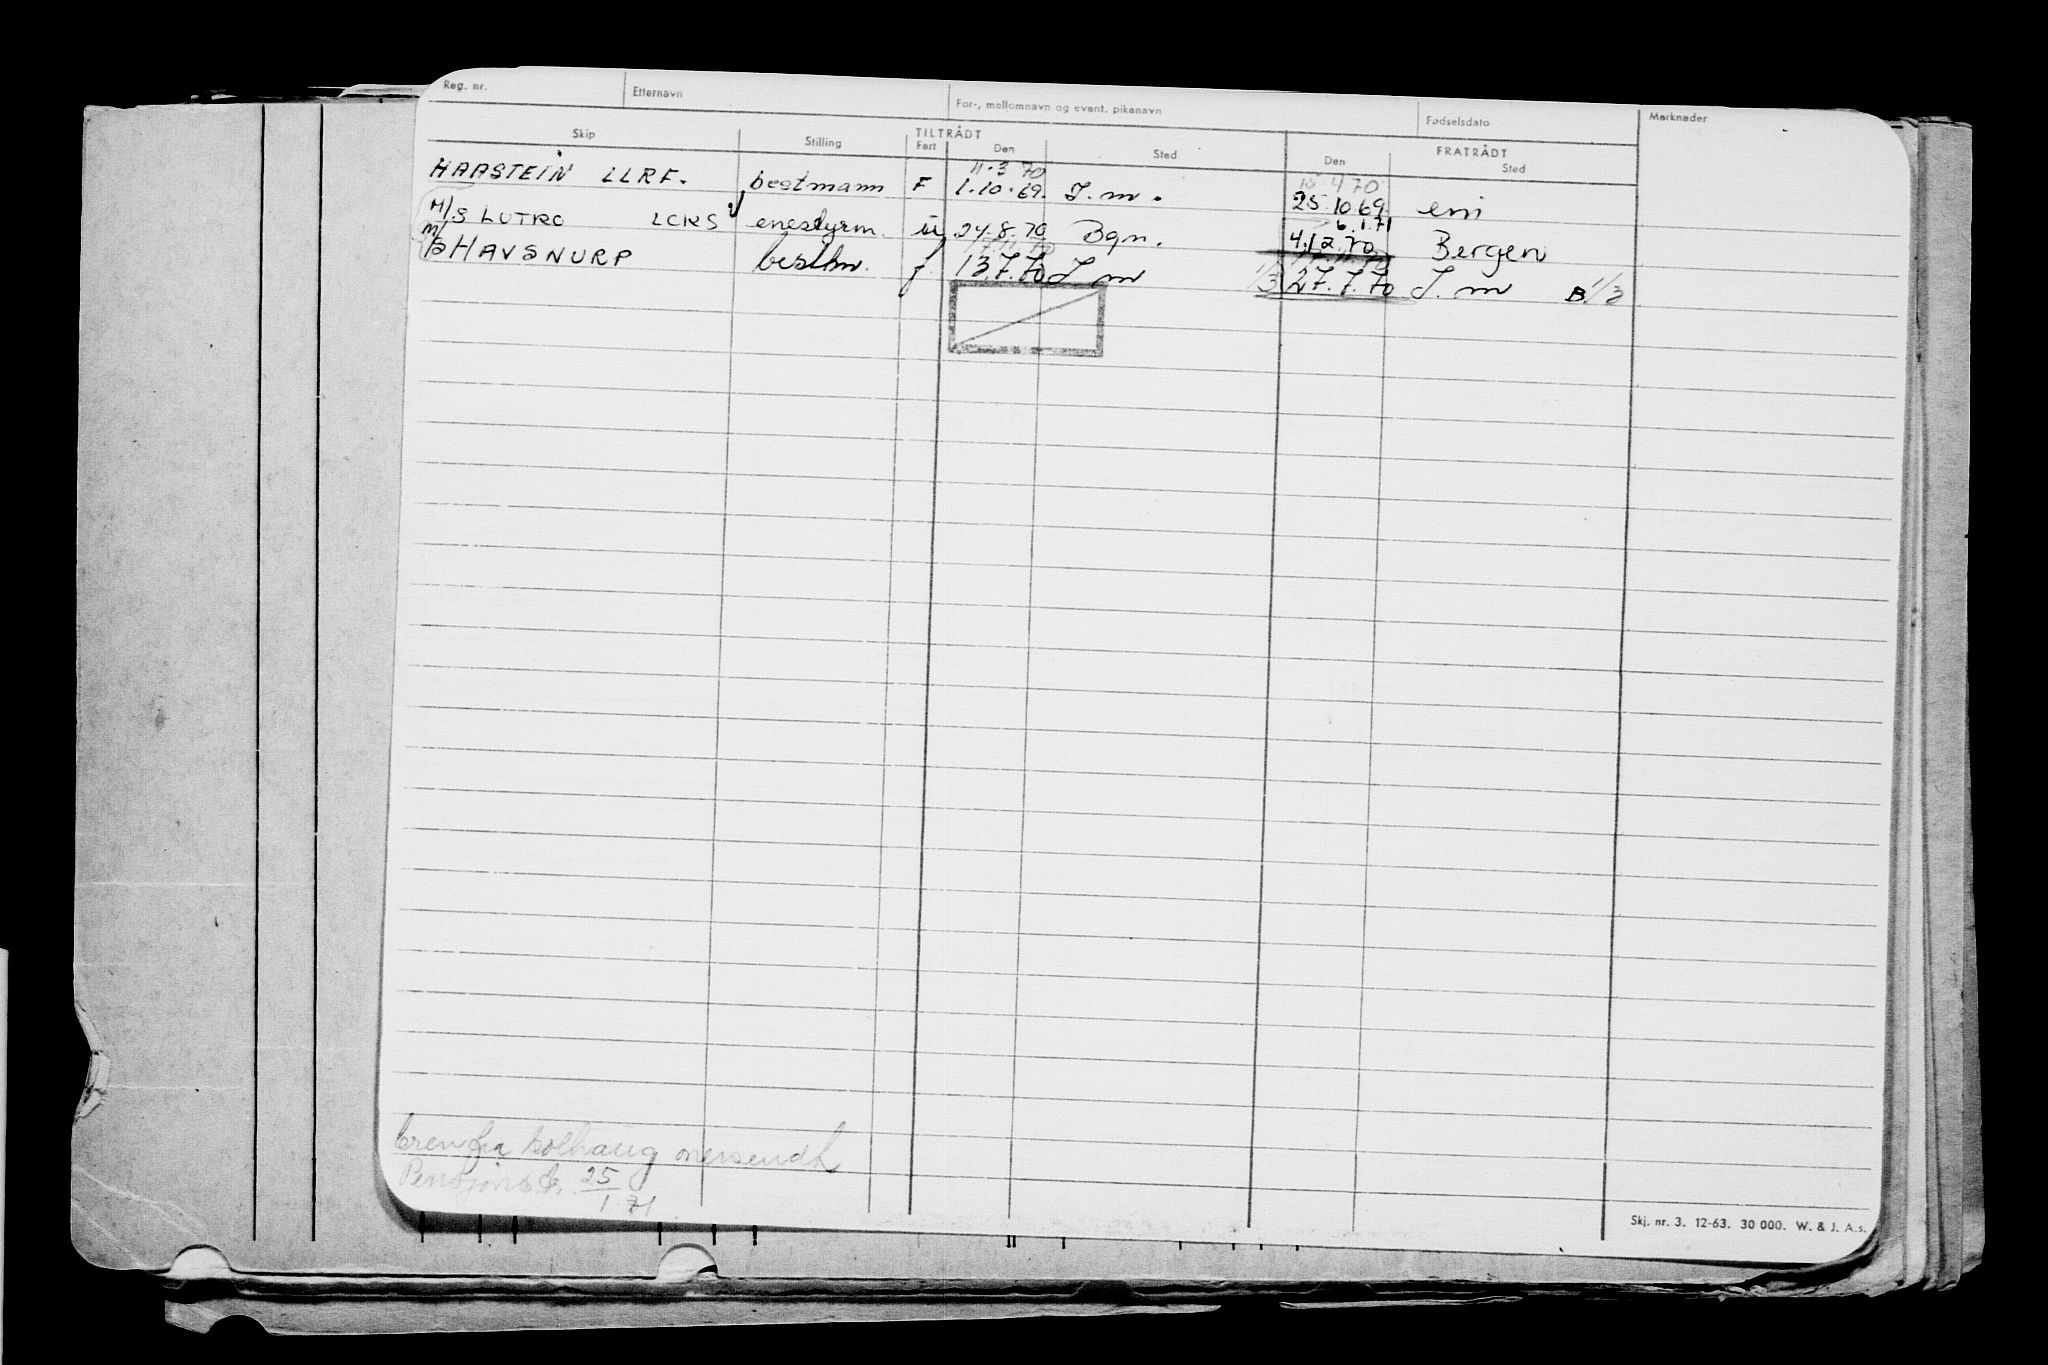 Reg. nr. Etternavn For-, mellomnavn og event. pikenavn Fødselsdato Merknader
TILTRÅDT FRATRÅDT
Skip Stilling Fart Den Sted Den Sted
11.3 70 15.4 70
HAASTEIN LLRF. bestmann F 1.10.69. I.m. 25.10 69 em
6.1.71
M/S LUTRO LCKS enestyrm. 24.8.70 Bgn. 4.12.70 Bergen
M/B HAVSNURP bestm. f 13.7.70 I m 1/3 27.7.70 I. m B 1/3
fra Solhaug oversendt
25
1 71
Skj. nr. 3. 12-63. 30 000. W. & J. A.s.